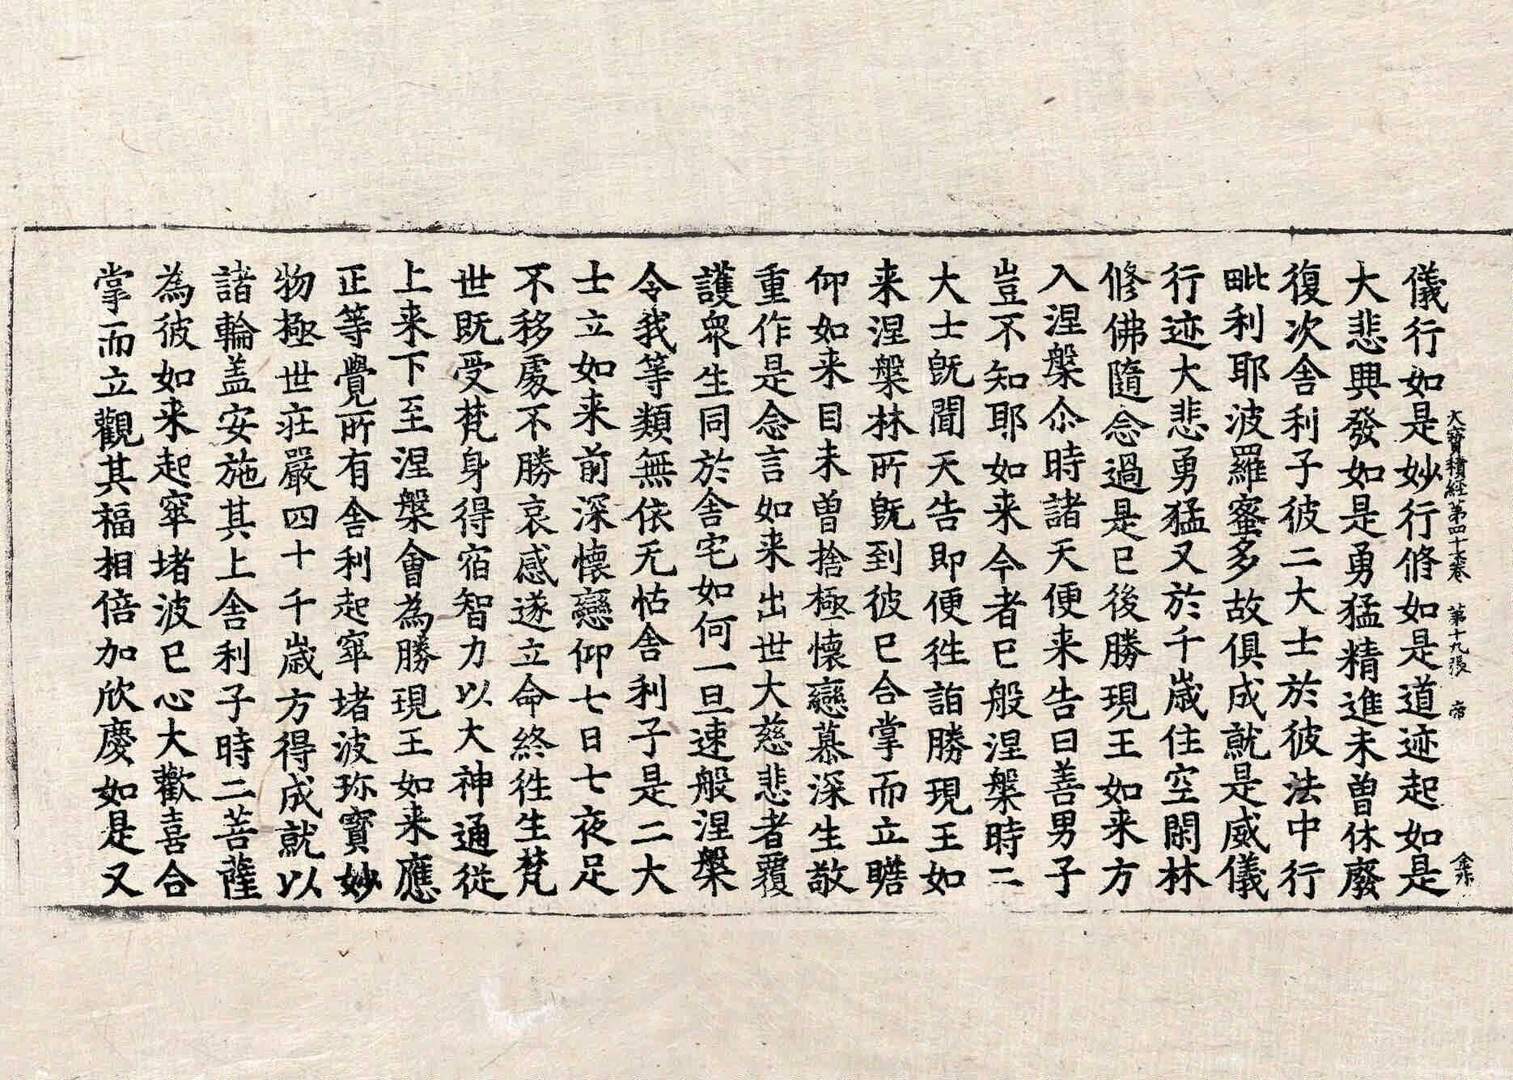 大寶積經第四十五卷 第十九張 帝
儀行如是妙行修如是道迹起如是
大悲興發如是勇猛精進未曾休廢
復次舍利子彼二大士於彼法中行
毗利耶波羅蜜多故俱成就是威儀
行迹大悲勇猛又於千歲住空閑林
修佛隨念過是已後勝現王如来方
入涅槃尒時諸天便来告曰善男子
豈不知耶如来今者已般涅槃時二
大士旣聞天告即便徃詣勝現王如
来涅槃林所旣到彼已合掌而立瞻
仰如来目未曾捨極懷戀慕深生敬
重作是念言如来出世大慈悲者覆
護衆生同於舍宅如何一旦速般涅槃
令我等類無依无怙舍利子是二大
士立如来前深懷戀仰七日七夜足
不移處不勝哀感遂立命終徃生梵
世既受梵身得宿智力以大神通從
上来下至涅槃會為勝現王如来應
正等覺所有舍利起窣堵波珎寶妙
物極世莊嚴四十千歲方得成就以
諸輪盖安施其上舍利子時二菩薩
為彼如来起窣堵波已心大歡喜合
掌而立觀其福相倍加欣慶如是又